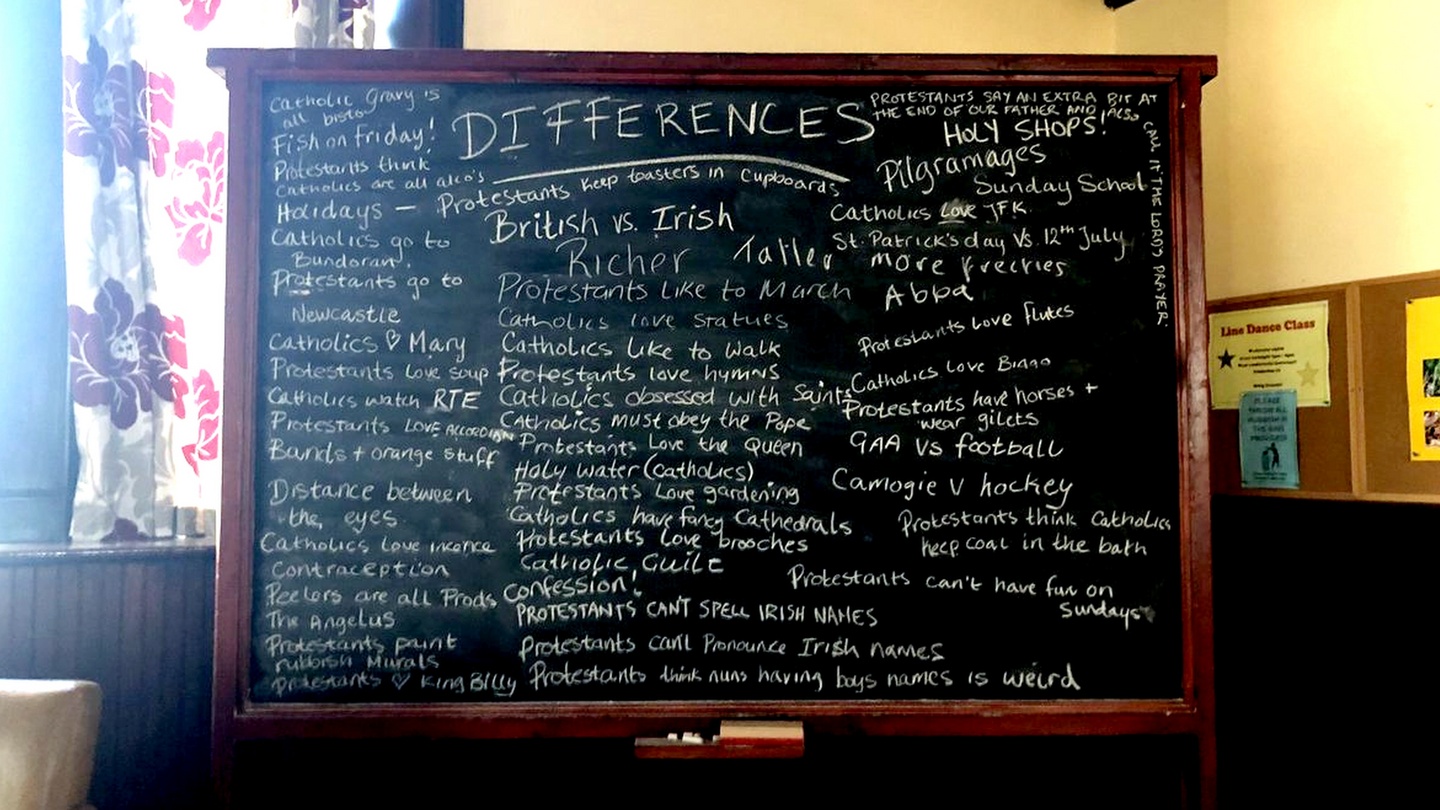 DIFFERENCES
Catholic Gravy is
all bisto
Fish on friday!
Protestants think
Catholics are all alco's
Holidays —
Catholics go to
Bundoran.
Protestants go to
Newcastle
Catholics ♡ Mary
Protestants Love soup
Catholics watch RTE
Protestants LOVE ACCORDIAN
Bands + orange stuff
Distance between
the eyes
Catholics Love incence
Contraception
Peelers are all Prods
The Angelus
Protestants paint
rubbish Murals
Protestants ♡ King Billy
Protestants keep toasters in Cupboards
British vs. Irish
Richer Taller
Protestants Like to March
Catholics love statues
Catholics like to walk
Protestants love hymns
Catholics obsessed with Saints
Catholics must obey the Pope
Protestants Love the Queen
Holy water (catholics)
Protestants Love gardening
Catholics have fancy Cathedrals
Protestants Love brooches
Catholic Guilt
Confession!
PROTESTANTS CAN'T SPELL IRISH NAMES
Protestants can't Pronounce Irish names
Protestants think nuns having boys names is weird
PROTESTANTS SAY AN EXTRA BIT AT
THE END OF OUR FATHER AND ALSO
CALL IT THE LORDS PRAYER.
HOLY SHOPS!
Pilgramages
Sunday School
Catholics Love JFK
St. Patrick's day Vs. 12th July
more freckles
Abba
Protestants Love flutes
Catholics Love Bingo
Protestants have horses +
wear gilets
GAA Vs football
Camogie V hockey
Protestants think Catholics
keep coal in the bath
Protestants can't have fun on
Sundays
Line Dance Class
PLEASE